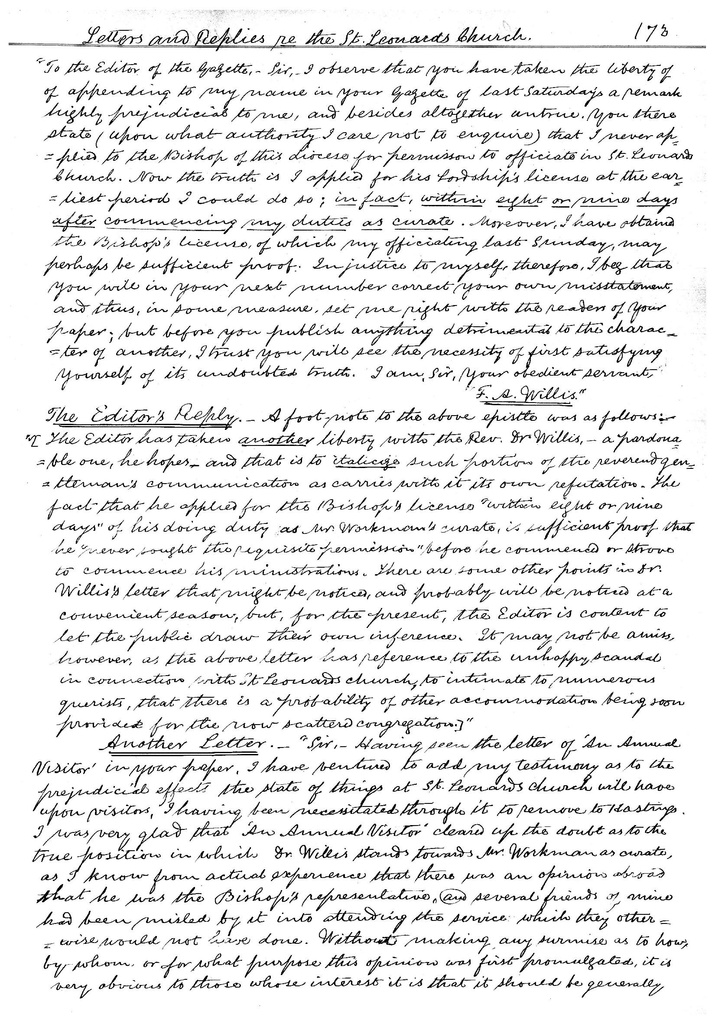 Letters and Replies re the St. Leonards Church. 173
"To the Editor of the Gazette,- Sir,- I observe that you have taken the liberty of
of appending to my name in your Gazette of last Saturdays a remark
highly prejudicial to me, and besides altogether untrue. You there
state (upon what authority I care not to enquire) that I never ap-
=plied to the Bishop of this diocese for permisson to officiate in St. Leonards
Church. Now the truth is I applied for his Lordship's license at the ear-
=liest period I could do so; in fact, within eight or nine days
after commencing my duties as curate. Moreover, I have obtained
the Bishop's license, of which my officiating last Sunday, may
perhaps be sufficient proof. In justice to myself, therefore, I beg that
you will in your next number correct your own misstatement,
and thus, in some measure, set me right with the readers of your
paper; but before you publish anything detrimental to the charac-
=ter of another, I trust you will see the necessity of first satisfying
yourself of its undoubted truth. I am, Sir, your obedient servant,
"F. A. Willis."
The Editor's Reply.- A foot-note to the above epistle was as follows:-
"[ The Editor has taken another liberty with the Rev. Dr Willis,- a pardona
=ble one, he hopes- and that is to italicize such portion of the reverend gen-
=tleman's communication as carries with it its own refutation. The
fact that he applied for the Bishop's license "within eight or nine
days" of his doing duty as Mr. Workman's curate, is sufficient proof that
he "never sought the requisite permission" before he commenced or strove
to commence his ministrations. There are some other points in Dr.
Willis's letter that might be noticed, and probably will be noticed at a
convenient season, but, for the present, the Editor is content to
let the public draw their own inference. It may not be amiss,
however, as the above letter has reference to the unhappy scandal
in connection with St Leonards church, to intimate to numerous
querists, that there is a probability of other accommodation being soon
provided for the now scatterd congregation.]"
Another Letter.- "Sir,- Having seen the letter of 'An Annual
Visitor' in your paper, I have ventured to add my testimony as to the
prejudicial effects the state of things at St. Leonards church will have
upon visitors, I having been necessitated through it to remove to Hastings.
I was very glad that 'An Annual Visitor' cleard up the doubt as to the
true position in which Dr. Willis stands towards Mr. Workman as curate,
as I know from actual experience that there was an opinion abroad
that he was the Bishop's representative, and several friends of mine
had been misled by it into attending the service which they other=
=wise would not have done. Without making any surmise as to how,
by whom or for what purpose this opinion was first promulgated, it is
very obvious to those whose interest it is that it should be generally